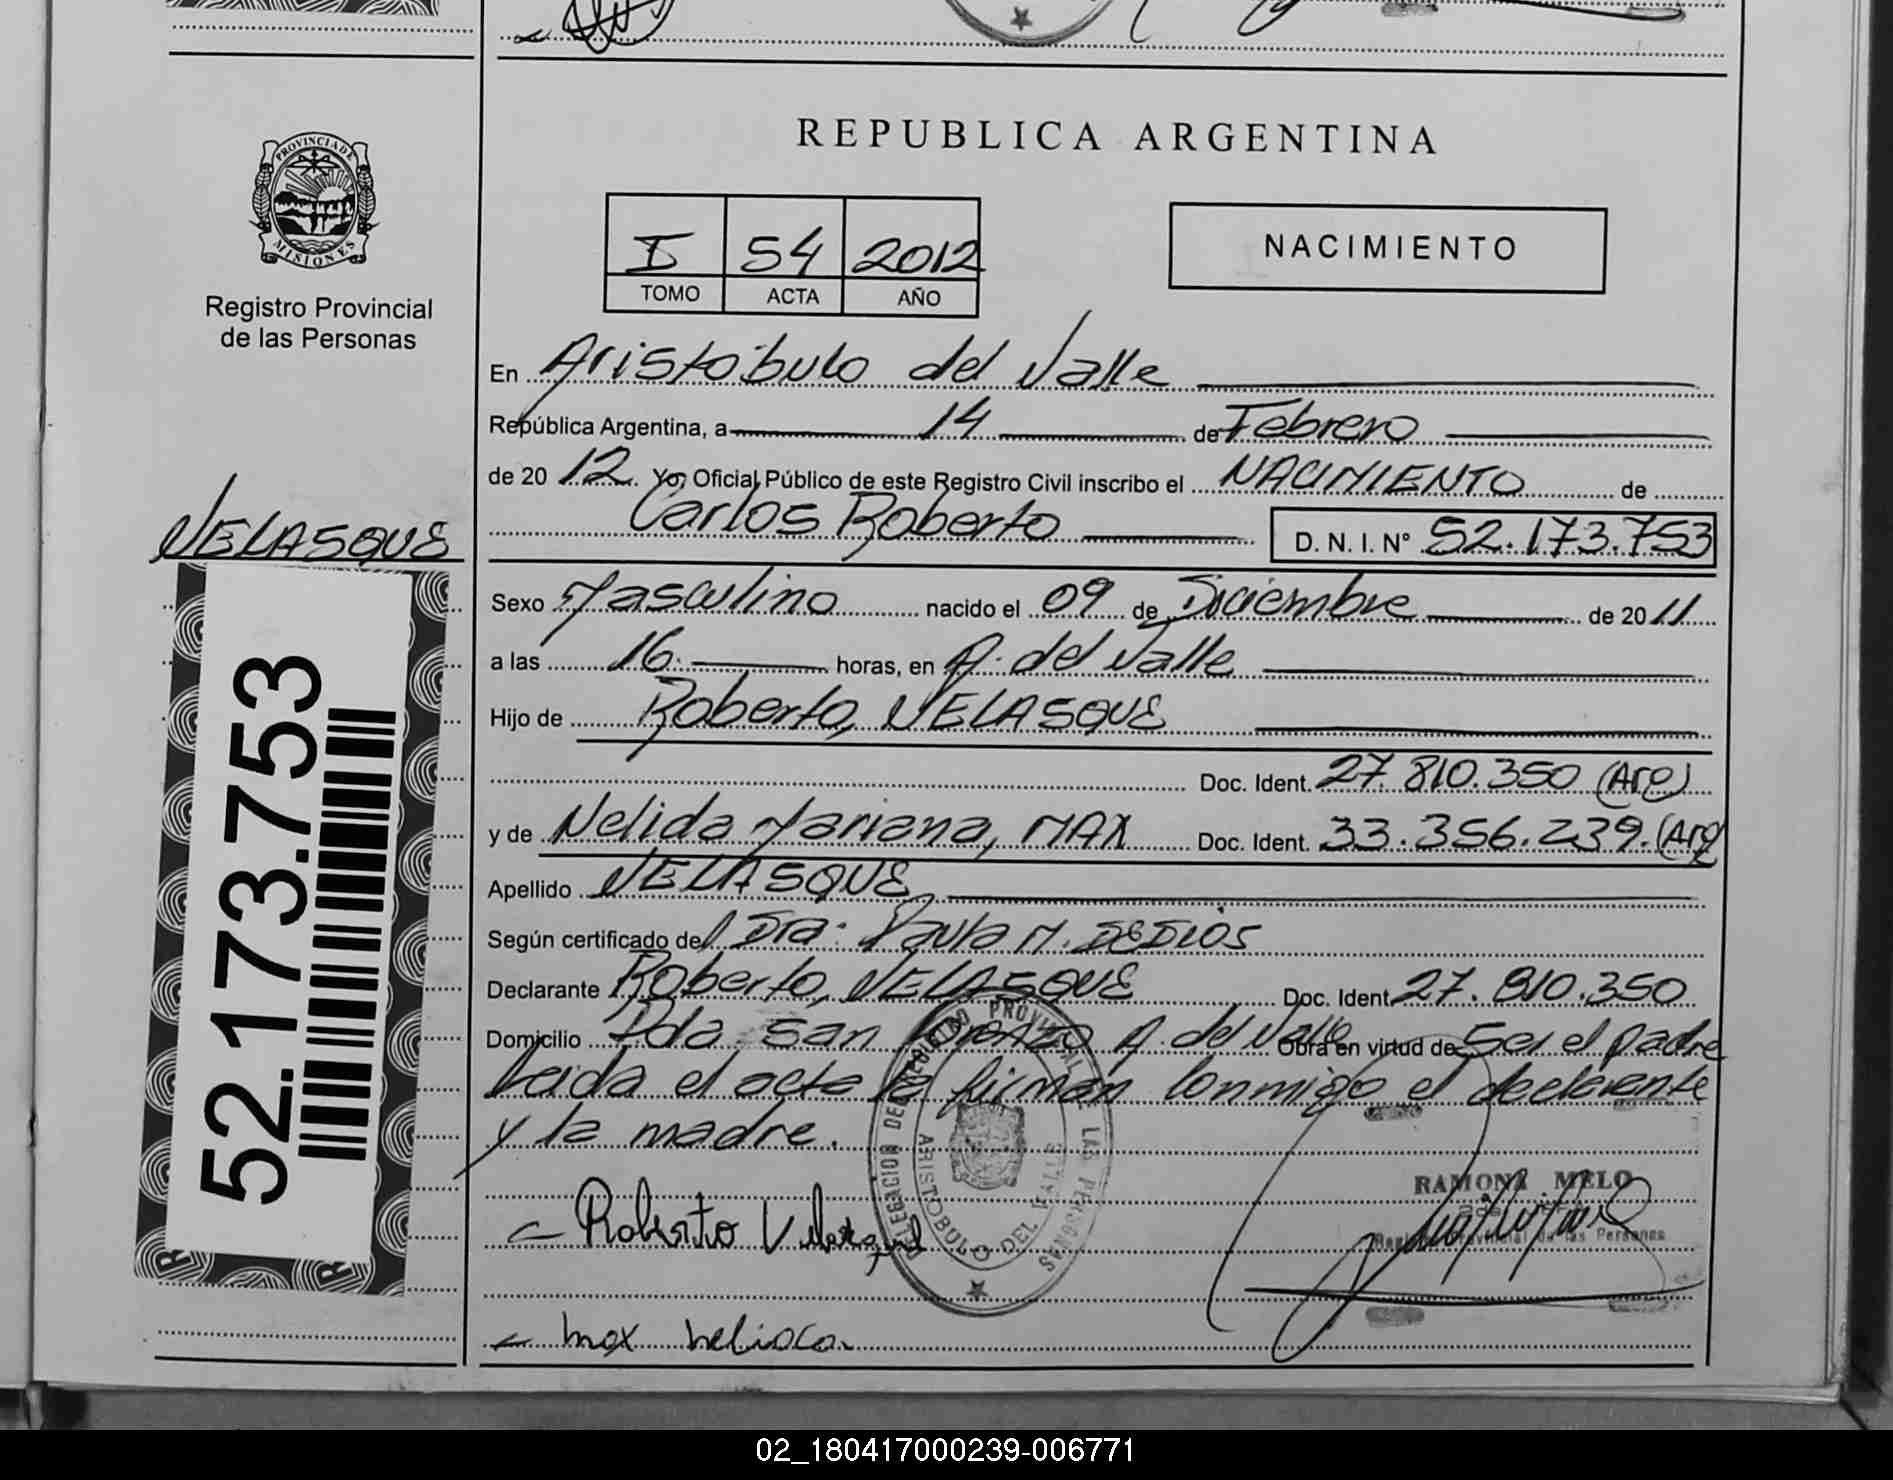 REPUBLICA ARGENTINA
PROVINCIA DE
MISIONES
Registro Provincial
de las Personas
I 54 2012
TOMO ACTA AÑO
NACIMIENTO
En Aristóbulo del Valle
República Argentina, a 14 de Febrero
de 20 12. Yo, Oficial Público de este Registro Civil inscribo el NACIMIENTO de
Carlos Roberto D. N. I. N° 52.173.753
VELASQUE
52.173.753
Sexo Masculino nacido el 09 de Diciembre de 20 11
a las 16. horas, en A. del Valle
Hijo de Roberto, VELASQUE
Doc. Ident. 27.810.350 (Arg)
y de Nelida Mariana, MAX Doc. Ident. 33.356.239. (Arg)
Apellido VELASQUE
Según certificado del Dra. Paula M. DEDIOS
Declarante Roberto, VELASQUE Doc. Ident. 27.810.350
Domicilio Pda San Lorenzo A. del Valle Obra en virtud de Ser el padre
Leida el acta la firman conmigo el declarante
y la madre.
DELEGACION DEL REGISTRO PROVINCIAL DE LAS PERSONAS
ARISTOBULO DEL VALLE
RAMONA MELO
Registro Provincial de las Personas
Roberto Velasque
max nelida
02_180417000239-006771